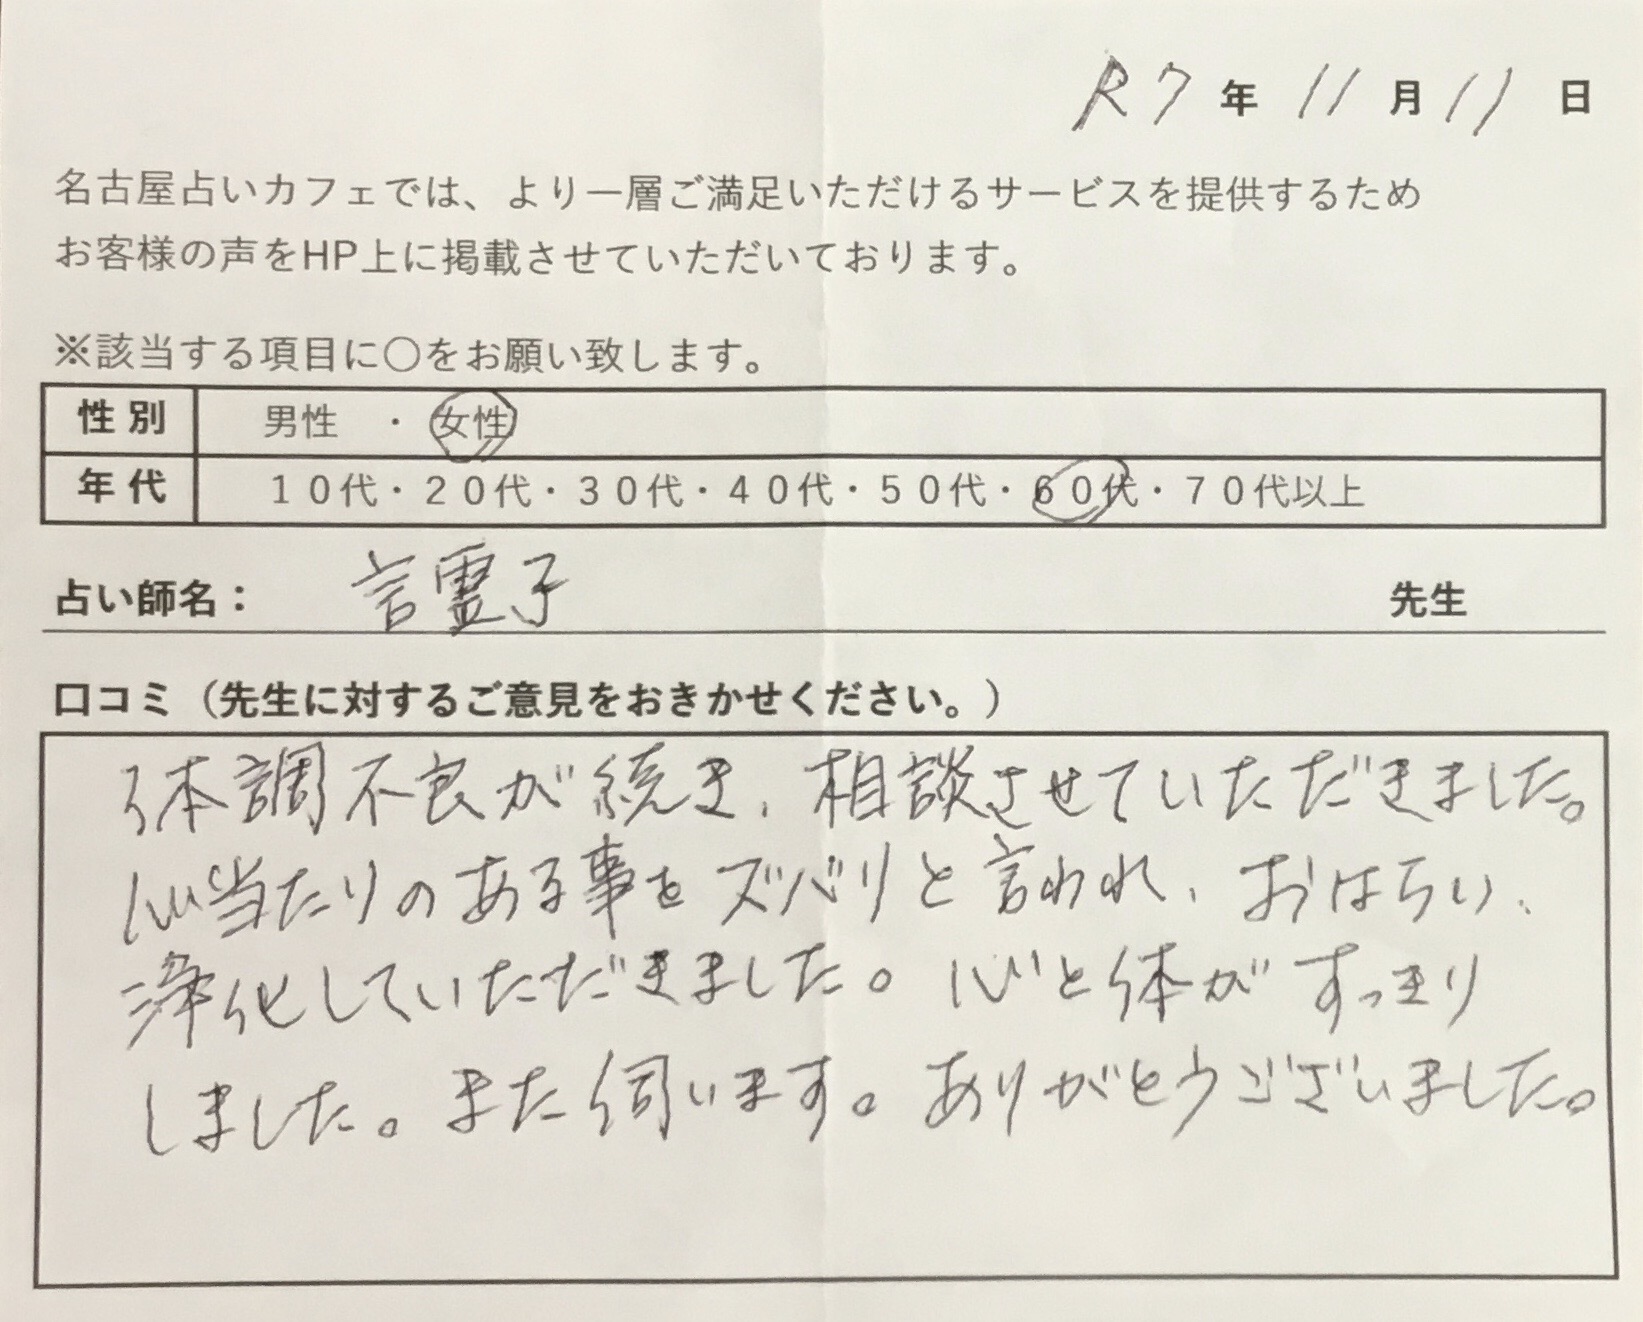 R7年11月11日
名古屋占いカフェでは、より一層ご満足いただけるサービスを提供するため
お客様の声をHP上に掲載させていただいております。
※該当する項目に○をお願い致します。
性別 男性 ・ 女性
年代 10代・20代・30代・40代・50代・60代・70代以上
占い師名： 言霊子 先生
口コミ（先生に対するご意見をおきかせください。）
体調不良が続き、相談させていただきました。
心当たりのある事をズバリと言われ、おはらい、
浄化していただきました。心と体がすっきり
しました。また伺います。ありがとうございました。